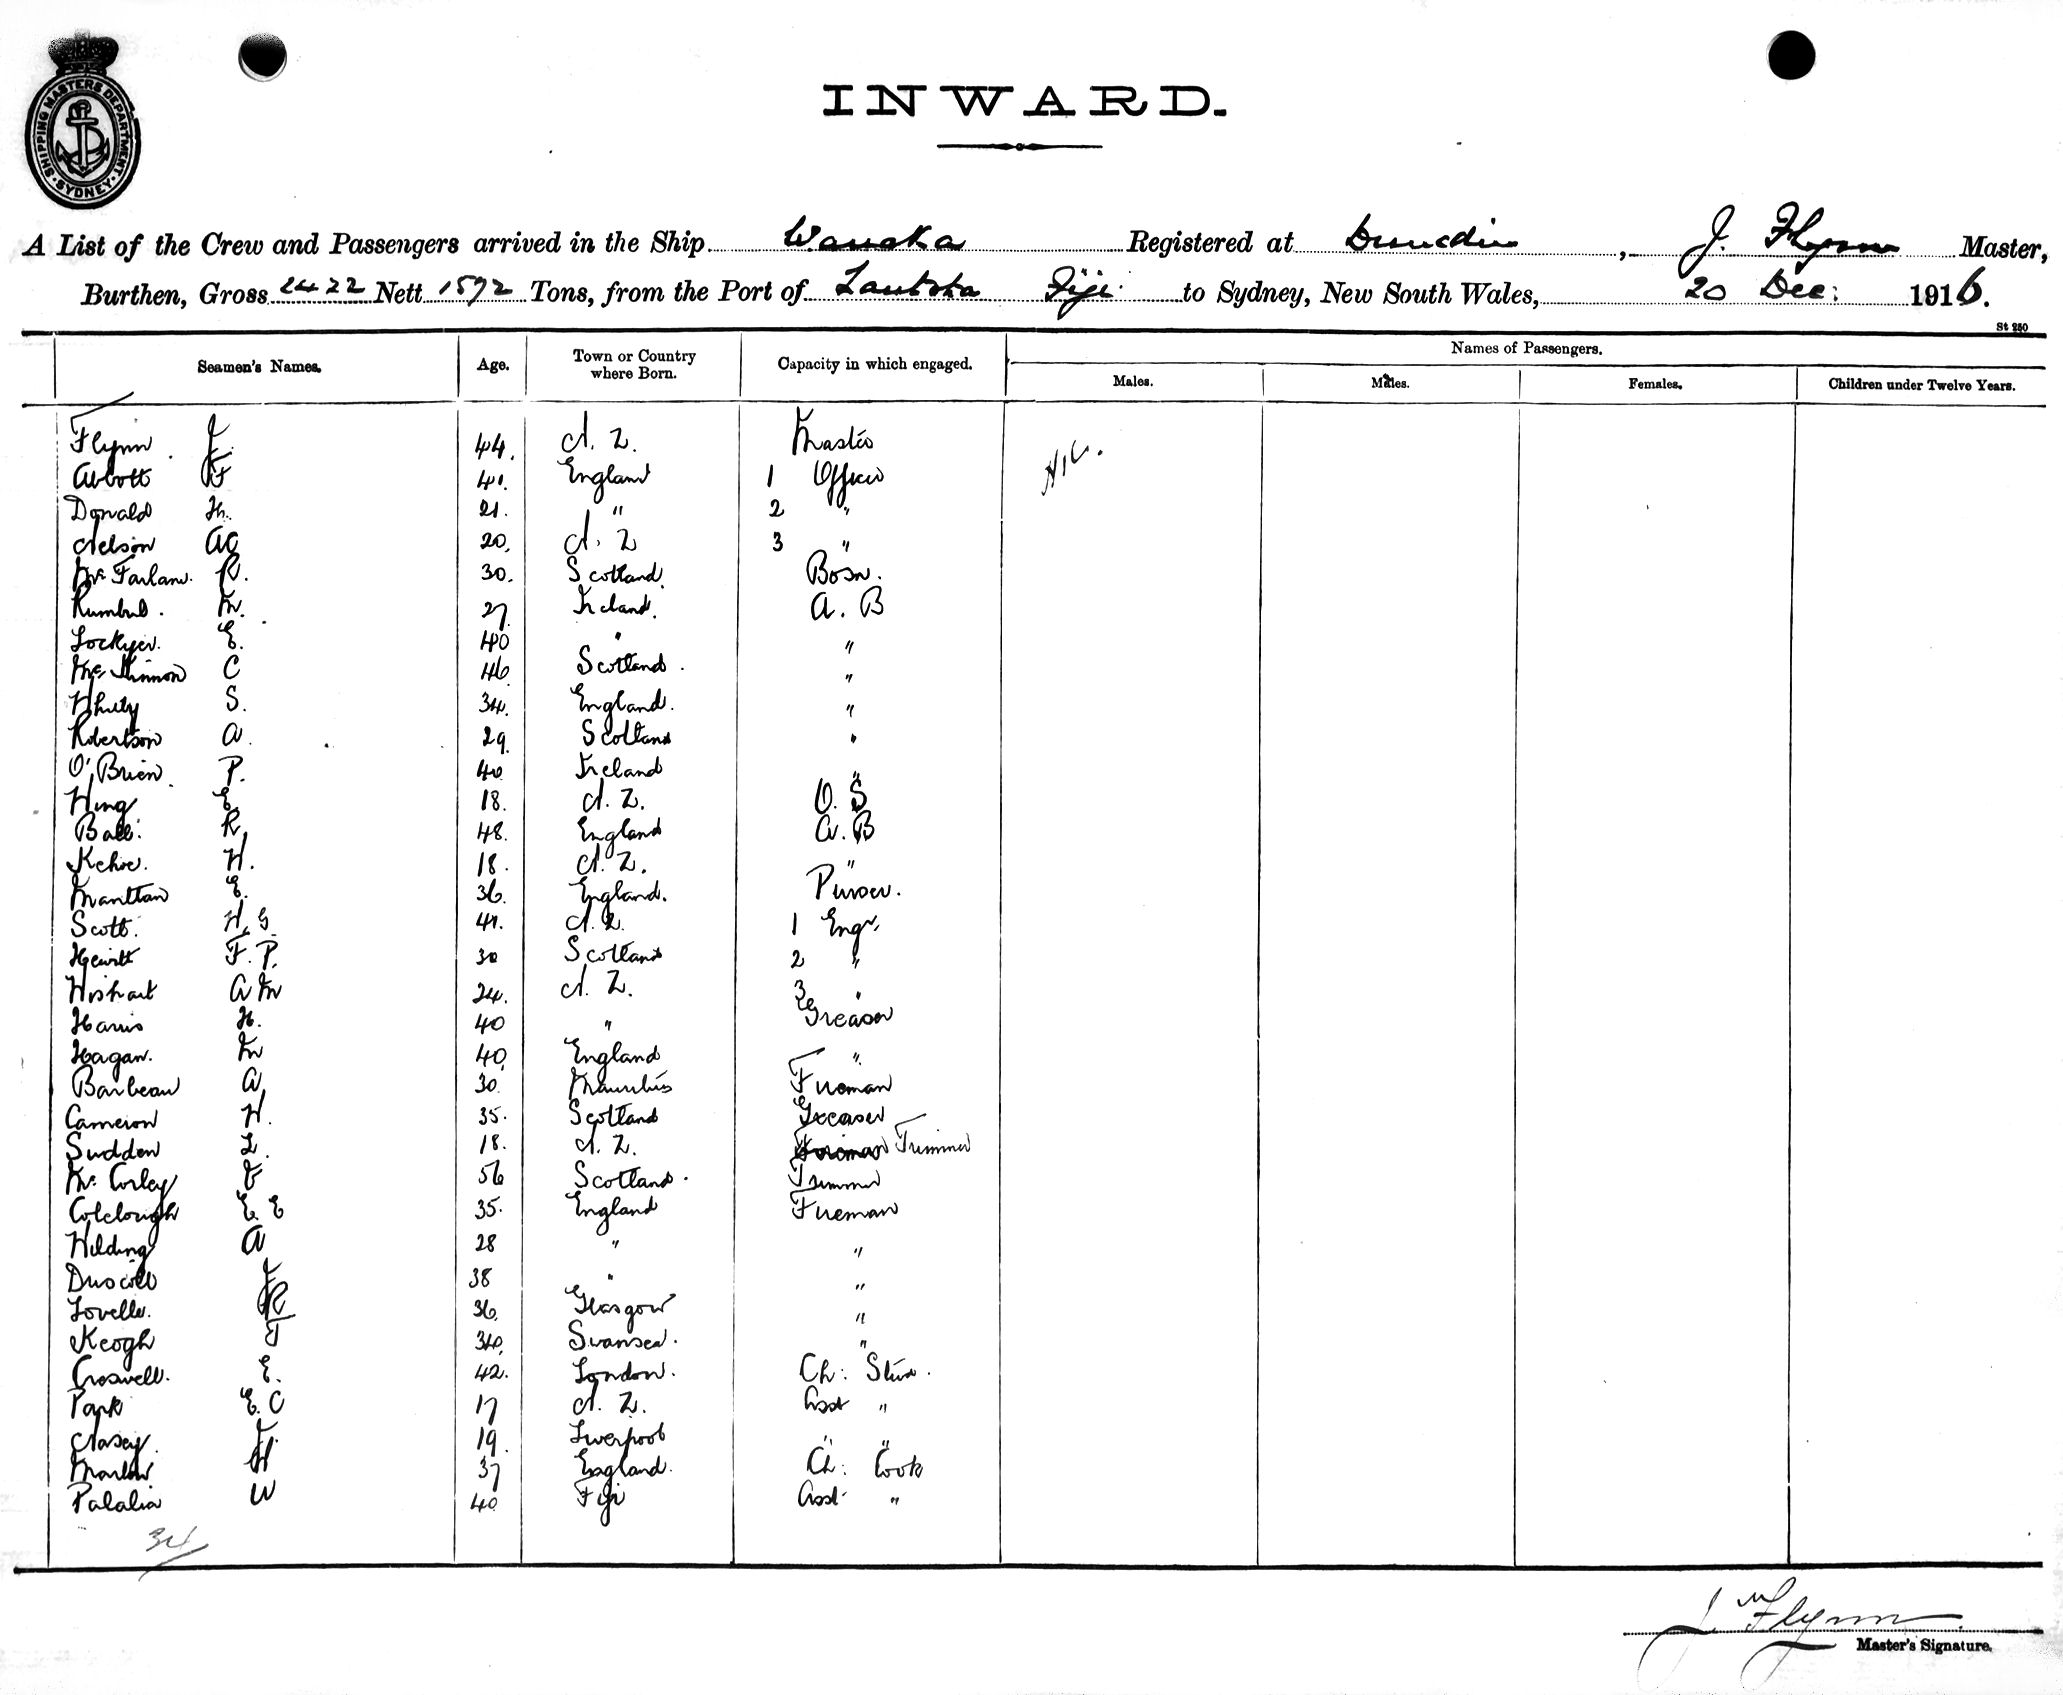 SHIPPING MASTERS DEPARTMENT SYDNEY
INWARD.
A List of the Crew and Passengers arrived in the Ship Wanaka Registered at Dunedin, J. Flynn Master,
Burthen, Gross 2422 Nett 1572 Tons, from the Port of Lautoka Fiji to Sydney, New South Wales, 20 Dec: 1916.
St 250
Seamen's Names. Age. Town or Country where Born. Capacity in which engaged. Names of Passengers.
Males. Males. Females. Children under Twelve Years.
Flynn J. 44. N. Z. Master
Abbott F 41. England 1 Officer
Donald H. 21. " 2 "
Nelson AC 20. N. Z 3 "
McFarlane R. 30. Scotland Bosn.
Rumbul. M. 27 Ireland. A. B
Lockyer. E. 40 " "
McKinnon C 46 Scotland. "
Whitty S. 34. England. "
Robertson A. 29. Scotland "
O'Brien P. 40 Ireland "
Wing E. 18. N. Z. O. S
Ball. R. 48. England A. B
Kehoe. W. 18. N. Z. "
Manttan E. 36. England. Purser.
Scott. W. G. 41. N. Z. 1 Engr.
Hewitt F. P. 30 Scotland 2 "
Wishart A M 24. N. Z. 3 "
Harris H. 40 " Greaser
Hagan. M 40 England "
Barbeau A 30. Mauritius Fireman
Cameron W. 35. Scotland Greaser
Sudden L. 18. N. Z. Fireman Trimmer
McCorley 56 Scotland. Trimmer
Colclough E. E 35. England Fireman
Wilding A 28 " "
Driscoll J 38 " "
Lovelle. R 36. Glasgow "
Keogh T 34. Swansea. "
Croswell. E. 42. London. Ch: Stew.
Park E. C 17 N. Z. Asst "
Nasey J. 19. Liverpool " "
Marlow W 37 England. Ch: Cook
Palalia W 40. Fiji Asst "
34
J M Flynn
Master's Signature.